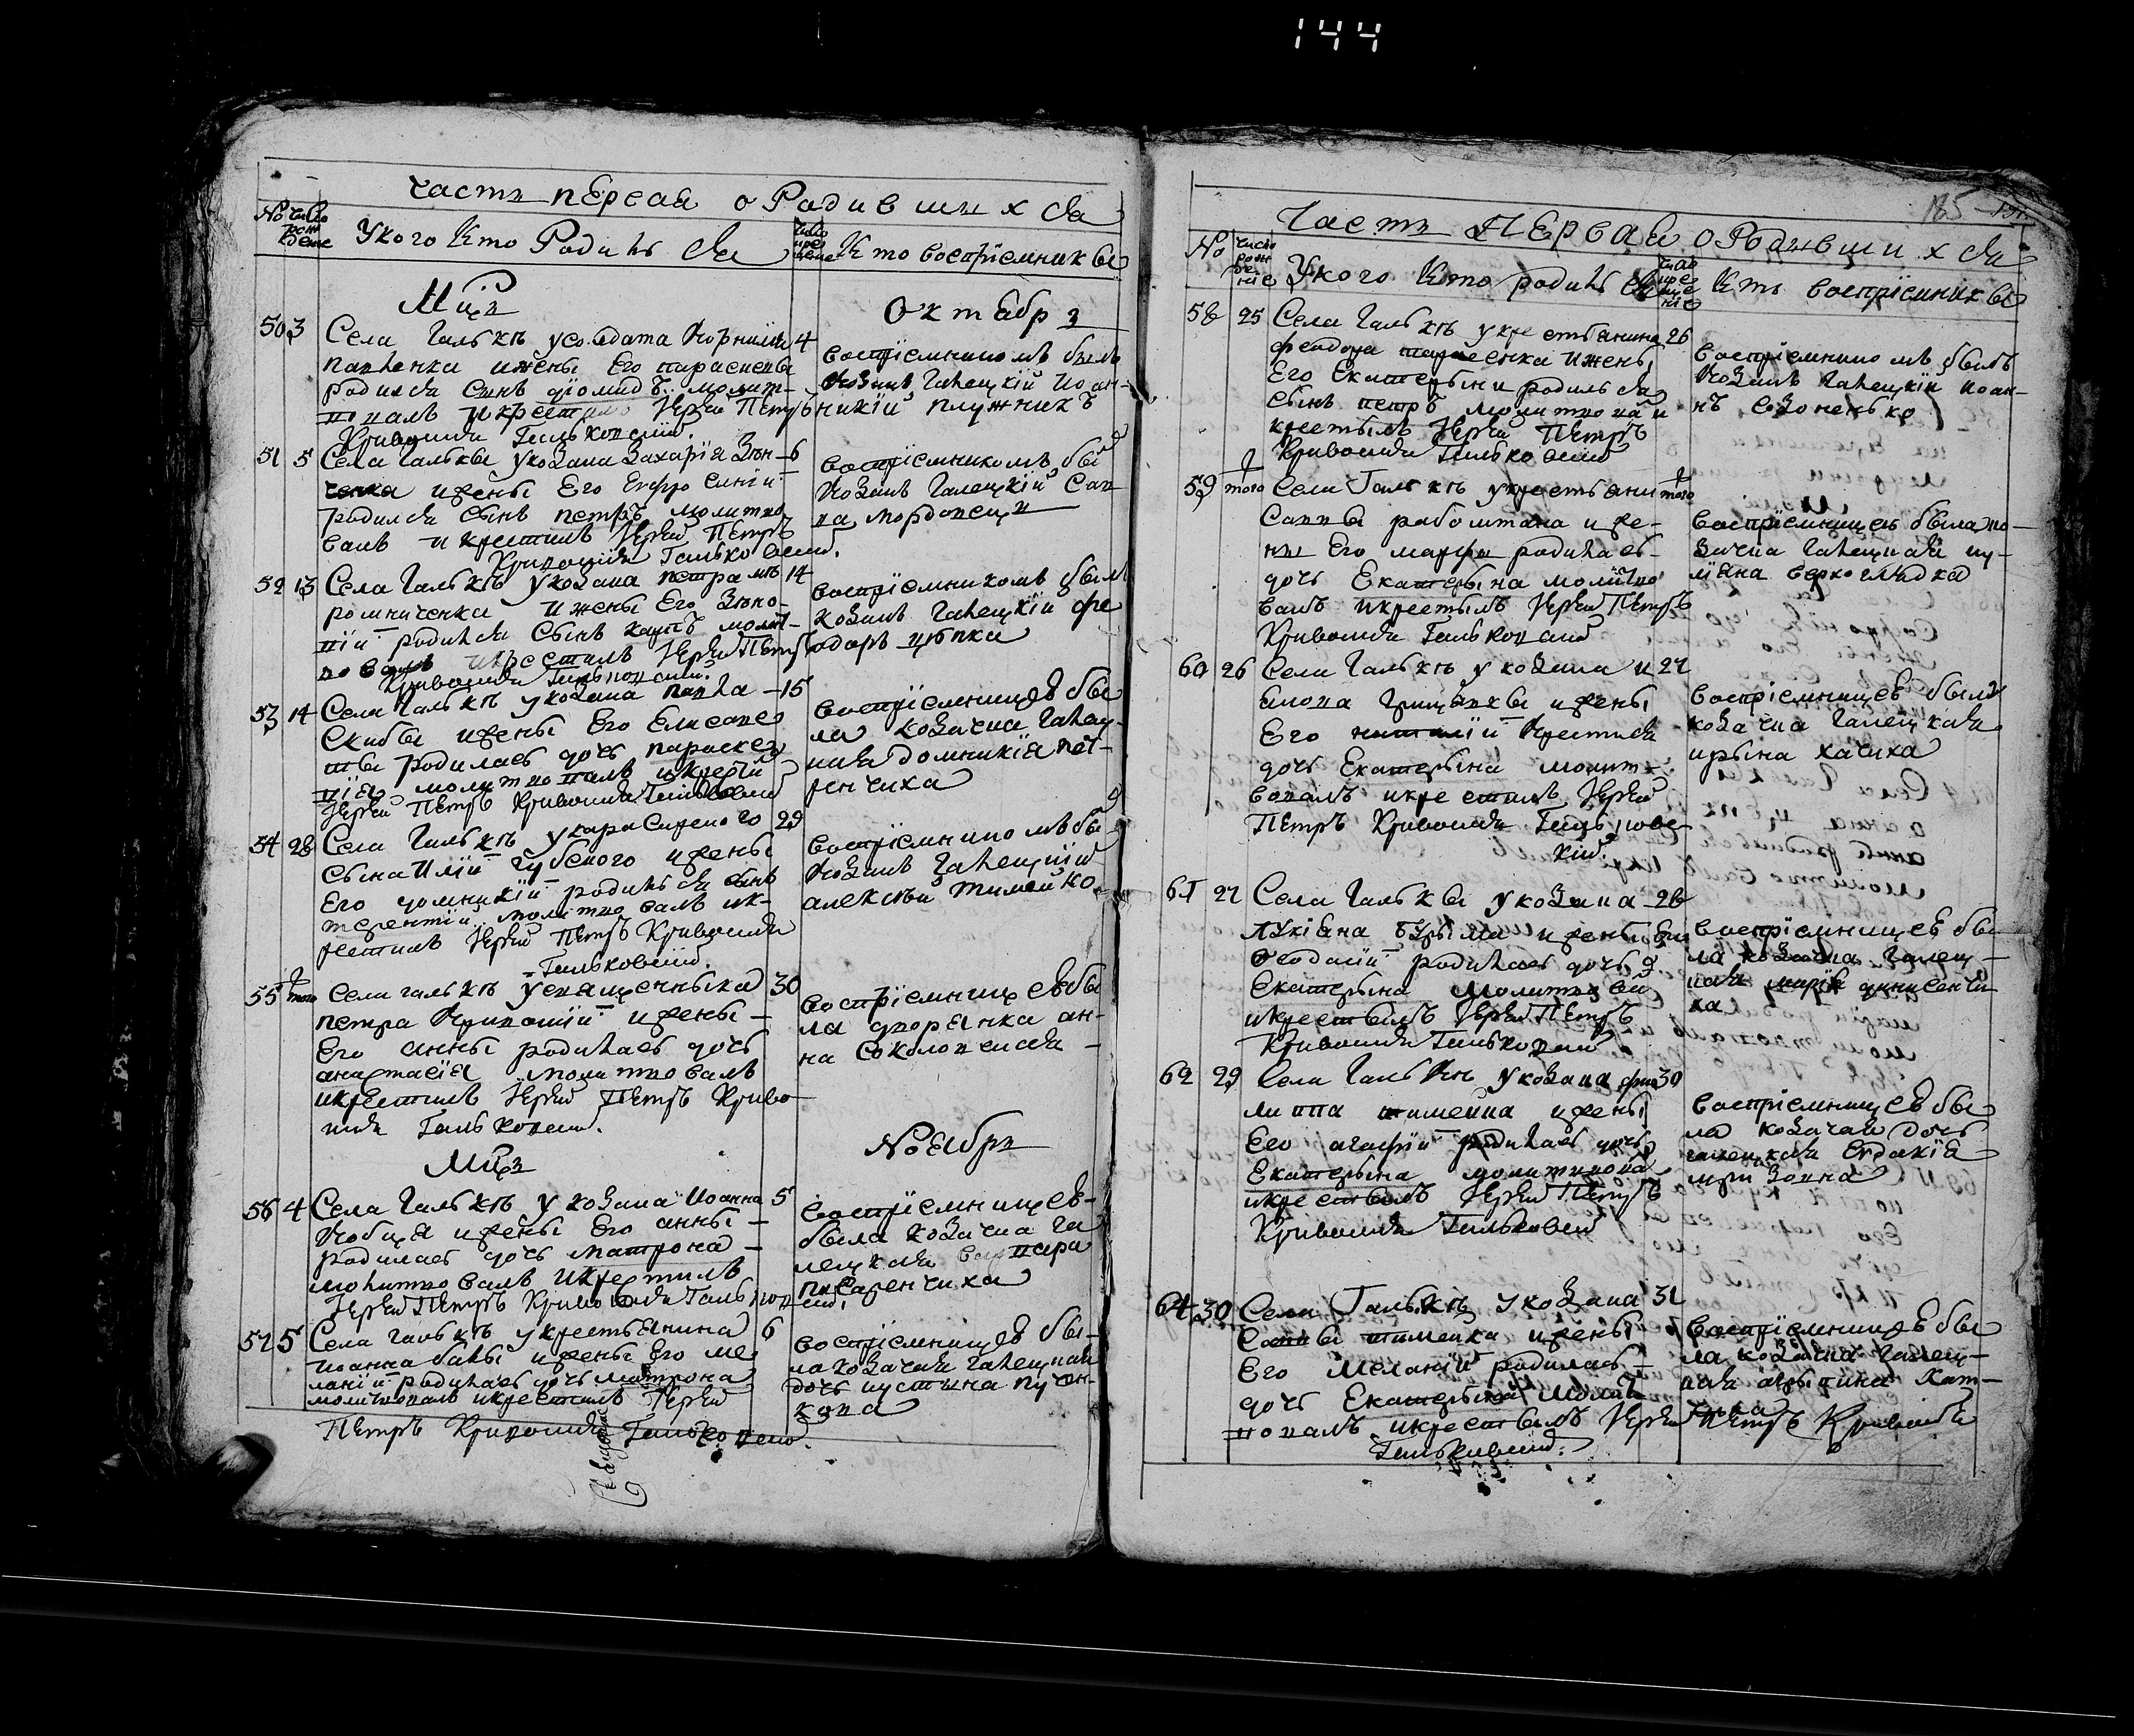 144
часть пЕрсая о Родив шы х ся
No число рожденіе
У кого Кто Родилъ ся
число крещеніе
Кто воспріемникы
Мцъ
Октябръ
50 3
Села Гальккъ у солдата Корнилія 4
павленка и жены Его параскевы
родилься сынъ діомидъ молит-
вовалъ и крестилъ Іерей Петръ
Кривошія Гальковскій.
воспріемникомъ былъ
Козакъ Галецкій Иоан-
никій плужникъ
51 5
Села Галькы у козака Захарія Зюн- 6
ченка и жены Его Ефросиніи
родился сынъ петръ молитво
валъ и крестилъ Іерей Петръ
Кривошія Гальковскій.
воспріемникомъ бы
Козакъ Галецкій Сав
ка мордовецъ
52 13
Села Гальккъ у козака петра мѣ 14
ромниченка и жены Его Зѣно-
віи родился сынъ карпъ молит-
вовалъ и крестилъ Іерей Петръ
Кривошія Гальковскій.
воспріемникомъ былъ
козакъ Галецкій фе
одоръ цюпка
53 14
Села Гальккъ у козака павла 15
Скибы и жены Его Елисаве
ты родилась дочь параскев
вія молитвовалъ и крести
Іерей Петръ Кривошія Гальковскій
воспріемницею бы
ла козачка Галец-
кая домникія пет-
ренчиха
54 28
Села Гальккъ у карасирского 29
сына Иліи губского и жены
Его домникіи родилься сынъ
терентій молитвовалъ и к-
рестилъ Іерей Петръ Кривошія
Гальковскій.
воспріемникомъ бы
Козакъ Галецкій
алексѣй тимейко
55 того
Села гальккъ у священныка 30
петра Кривошіи и жены
Его анны родилась дочь
анастасія молитвовалъ
и крестилъ Іерей Петръ Криво
шія Гальковскій.
воспріемницею бы
ла дворянка ан-
на соколовская
Мцъ
Ноябрь
56 4
Села Гальккъ у козака Иоанна 5
Кобиця и жены Его анны
родилась дочь матрона
молитвовалъ и крестилъ
Іерей Петръ Кривошія Гальковскій.
воспріемницею
была козачка га
лецкая варвара
писаренчиха
57 5
Села гальккъ у крестьянина 6
иоанна бабы и жены Его ме
ланіи родилась дочь матрона
молитвовалъ и крестилъ Іерей
Петръ Кривошія Гальковскій.
воспріемницею бы-
ла козачая Галецкая
дочь иустина пучен-
кова
185
Часть пЕрвая о Родившихся
No число рожденіе
У кого Кто родилься
число крещеніе
Кто воспріемникы
58 25
Села Гальккъ у крестьянина 26
феодора тараненка и жены
Его Екатерыны родилься
сынъ петръ молитвова и
крестылъ Іерей Петръ
Кривошія Гальковскій
воспріемникомъ былъ
Козакъ Галецкій иоан-
нъ созоненько
59 того
Села Гальккъ у крестьяни того
Саввы работана и же-
ны Его марфы родилась
дочь Екатерына молитво
валъ и крестылъ Іерей Петръ
Кривошія Гальковскій
воспріемницею была ко-
зачка Галецкая иу-
ліяна верхоглядка
60 26
Села Гальккъ у козака и 27
якова грицанкы и жены
Его наталіи Крестися
дочь Екатерына молит-
вовалъ и крестилъ Іерей
Петръ Кривошія Гальковс
кій.
воспріемницею была
козачка Галецкая
ирына хачиха
61 27
Села Галькы у козака 28
лукіяна бурыма и жены Его
феодосіи родилась дочь
Екатерына молитвова
и крестылъ Іерей Петръ
Кривошія Гальковскій
воспріемницею бы
ла козачка Галец-
кая марія динисенчи
ха
62 29
Села Гальккъ у козака фи 30
липпа тимейка и жены
Его агафіи родилась дочь
Екатерына молитвова
и крестылъ Іерей Петръ
Кривошія Гальковскій
воспріемницею бы
ла козачая дочь
галецкая Евдокія
64 30
Села Гальккъ у козака 31
Саввы тимейка и жены
Его меланіи родилась
дочь Екатерына молит
вовалъ и крестылъ Іерей Петръ Кривошія
Гальковскій.
воспріемницею бы
ла козачка Галец-
кая агрыпина Кат-